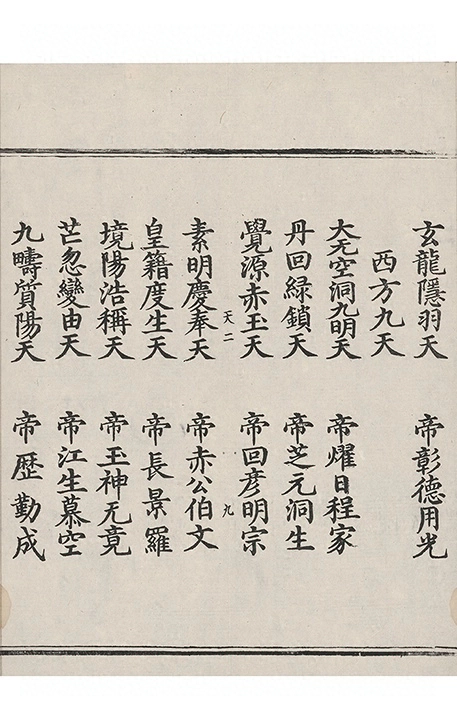 玄龍隱羽天　帝彰德用光
西方九天
大无空洞九明天　帝燿日程家
丹回綠鎖天　帝芝元洞生
覺源赤玉天　帝回彦明宗
天二　九
素明慶奉天　帝赤公伯文
皇籍度生天　帝長景羅
境陽浩稱天　帝王神无竟
芒忽變由天　帝江生慕空
九疇質陽天　帝歷勤成